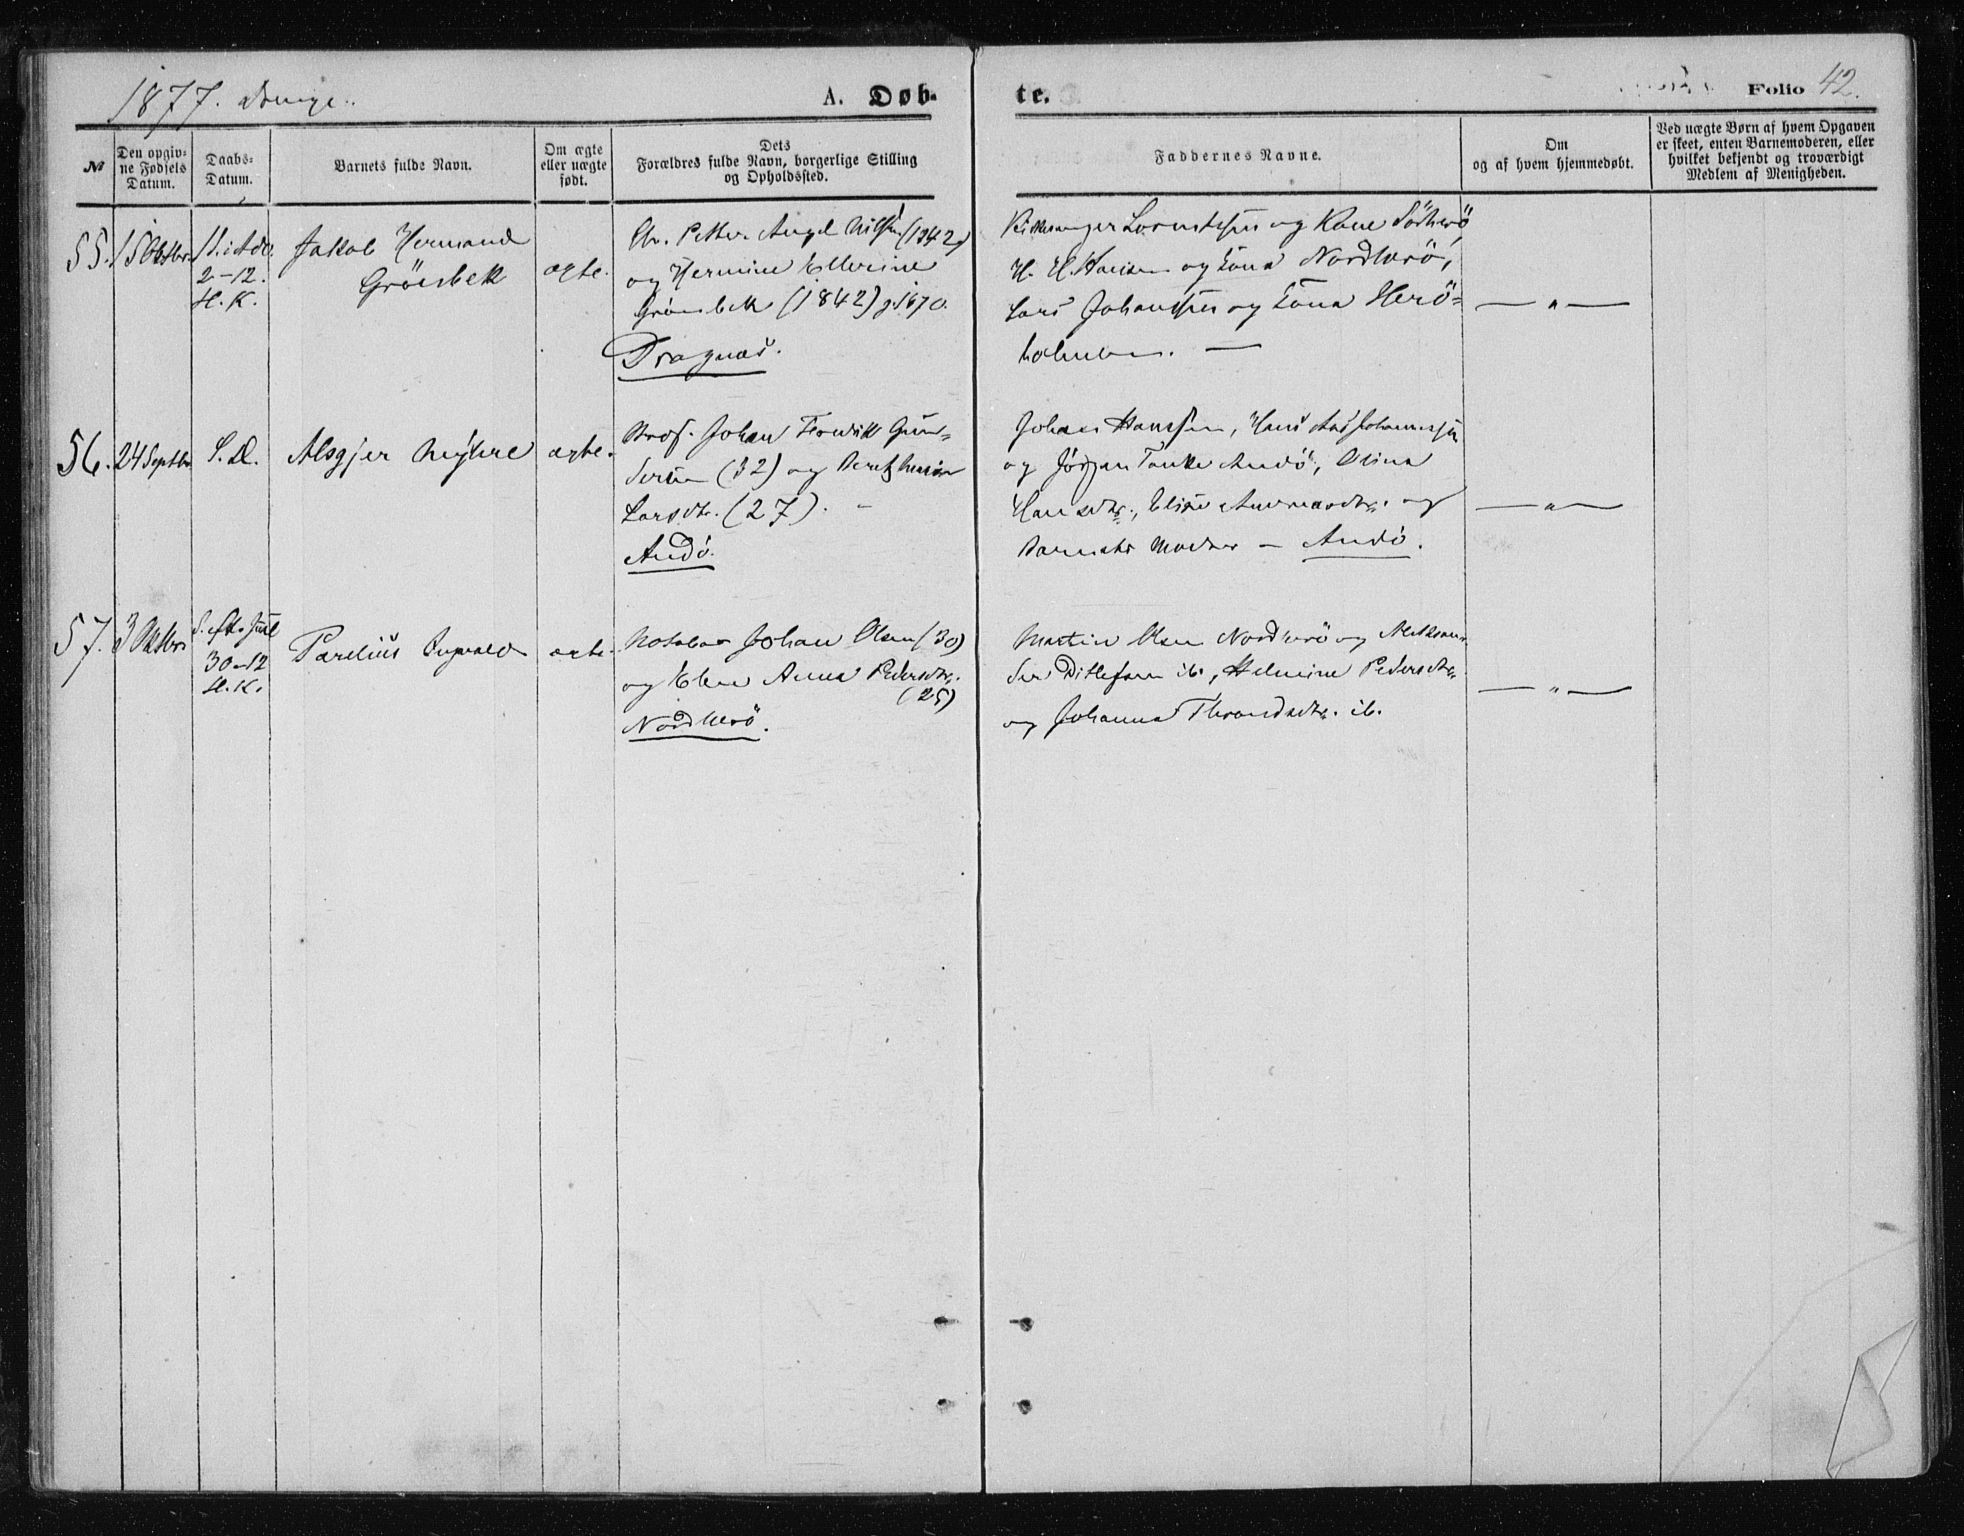 1877. Drenge.
A. Døb-
te.
Folio 42.
№
Den opgiv-
ne Fødsels
Datum.
Daabs-
Datum.
Barnets fulde Navn.
Om ægte
eller uægte
født.
Dets
Forældres fulde Navn, borgerlige Stilling
og Opholdssted.
Faddernes Navne.
Om
og af hvem hjemmedøbt.
Ved uægte Børn af hvem Opgaven
er skeet, enten Barnemoderen, eller
hvilket bekjendt og troværdigt
Medlem af Menigheden.
55.
15 Oktbr.
1 S. i Adv.
2-12.
H. K.
Jakob Hermand
Grönbek
ægte.
Petter Angel Nilsen (1842)
og Hermine Ellerine
Grönbek (1842) g. 1870.
Dragnæs.
Kirkesanger Lorntsen og Kone Sörherö,
H. H. Hansen og Kona Nordherö,
Lars Johansen og Kona Herö-
holmen. —
— " —
56.
24 Septbr.
S. D.
Alsgjer Myhre
ægte.
Johan Fredrik Gun-
sen (32) og Beret Maria
Larsdtr. (27). -
Andö.
Johan Hansen, Hans Johannesen
og Jörgen Andö, Olina
Hansdtr., Elise og
Barnets Moder - Andö.
— " —
57.
3 Oktbr.
S. eft. Jul
30-12
H. K.
Parelius Ingvald
ægte.
Johan Olsen (30)
og Elen Anna Pedersdtr.
(25)
Nordherö.
Martin Olsen Nordherö og Aleksan-
der Ditlefsen ib., Helmine Pedersdtr.
og Johanna Throndsdtr. ib.
— " —